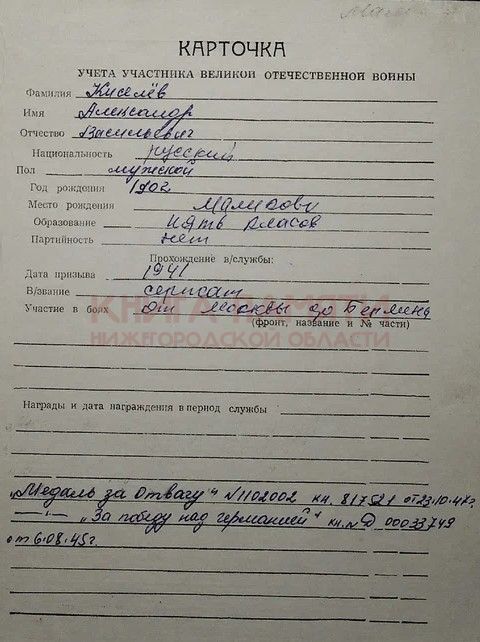 КАРТОЧКА
УЧЕТА УЧАСТНИКА ВЕЛИКОЙ ОТЕЧЕСТВЕННОЙ ВОЙНЫ
Фамилия Киселёв
Имя Александр
Отчество Васильевич
Национальность русский
Пол мужской
Год рождения 1902
Место рождения
Образование пять класов
Партийность нет
Прохождение в/службы:
Дата призыва 1941
В/звание сержант
Участие в боях от Москвы до Берлина
(фронт, название и № части)
КНИГА ПАМЯТИ
НИЖЕГОРОДСКОЙ ОБЛАСТИ
Награды и дата награждения в период службы
„Медаль за Отвагу" N 1102002 кн. 817521 от 23.10.47г.
—"— „За победу над германией" кн. № Д 00033749
от 6.08.45г.